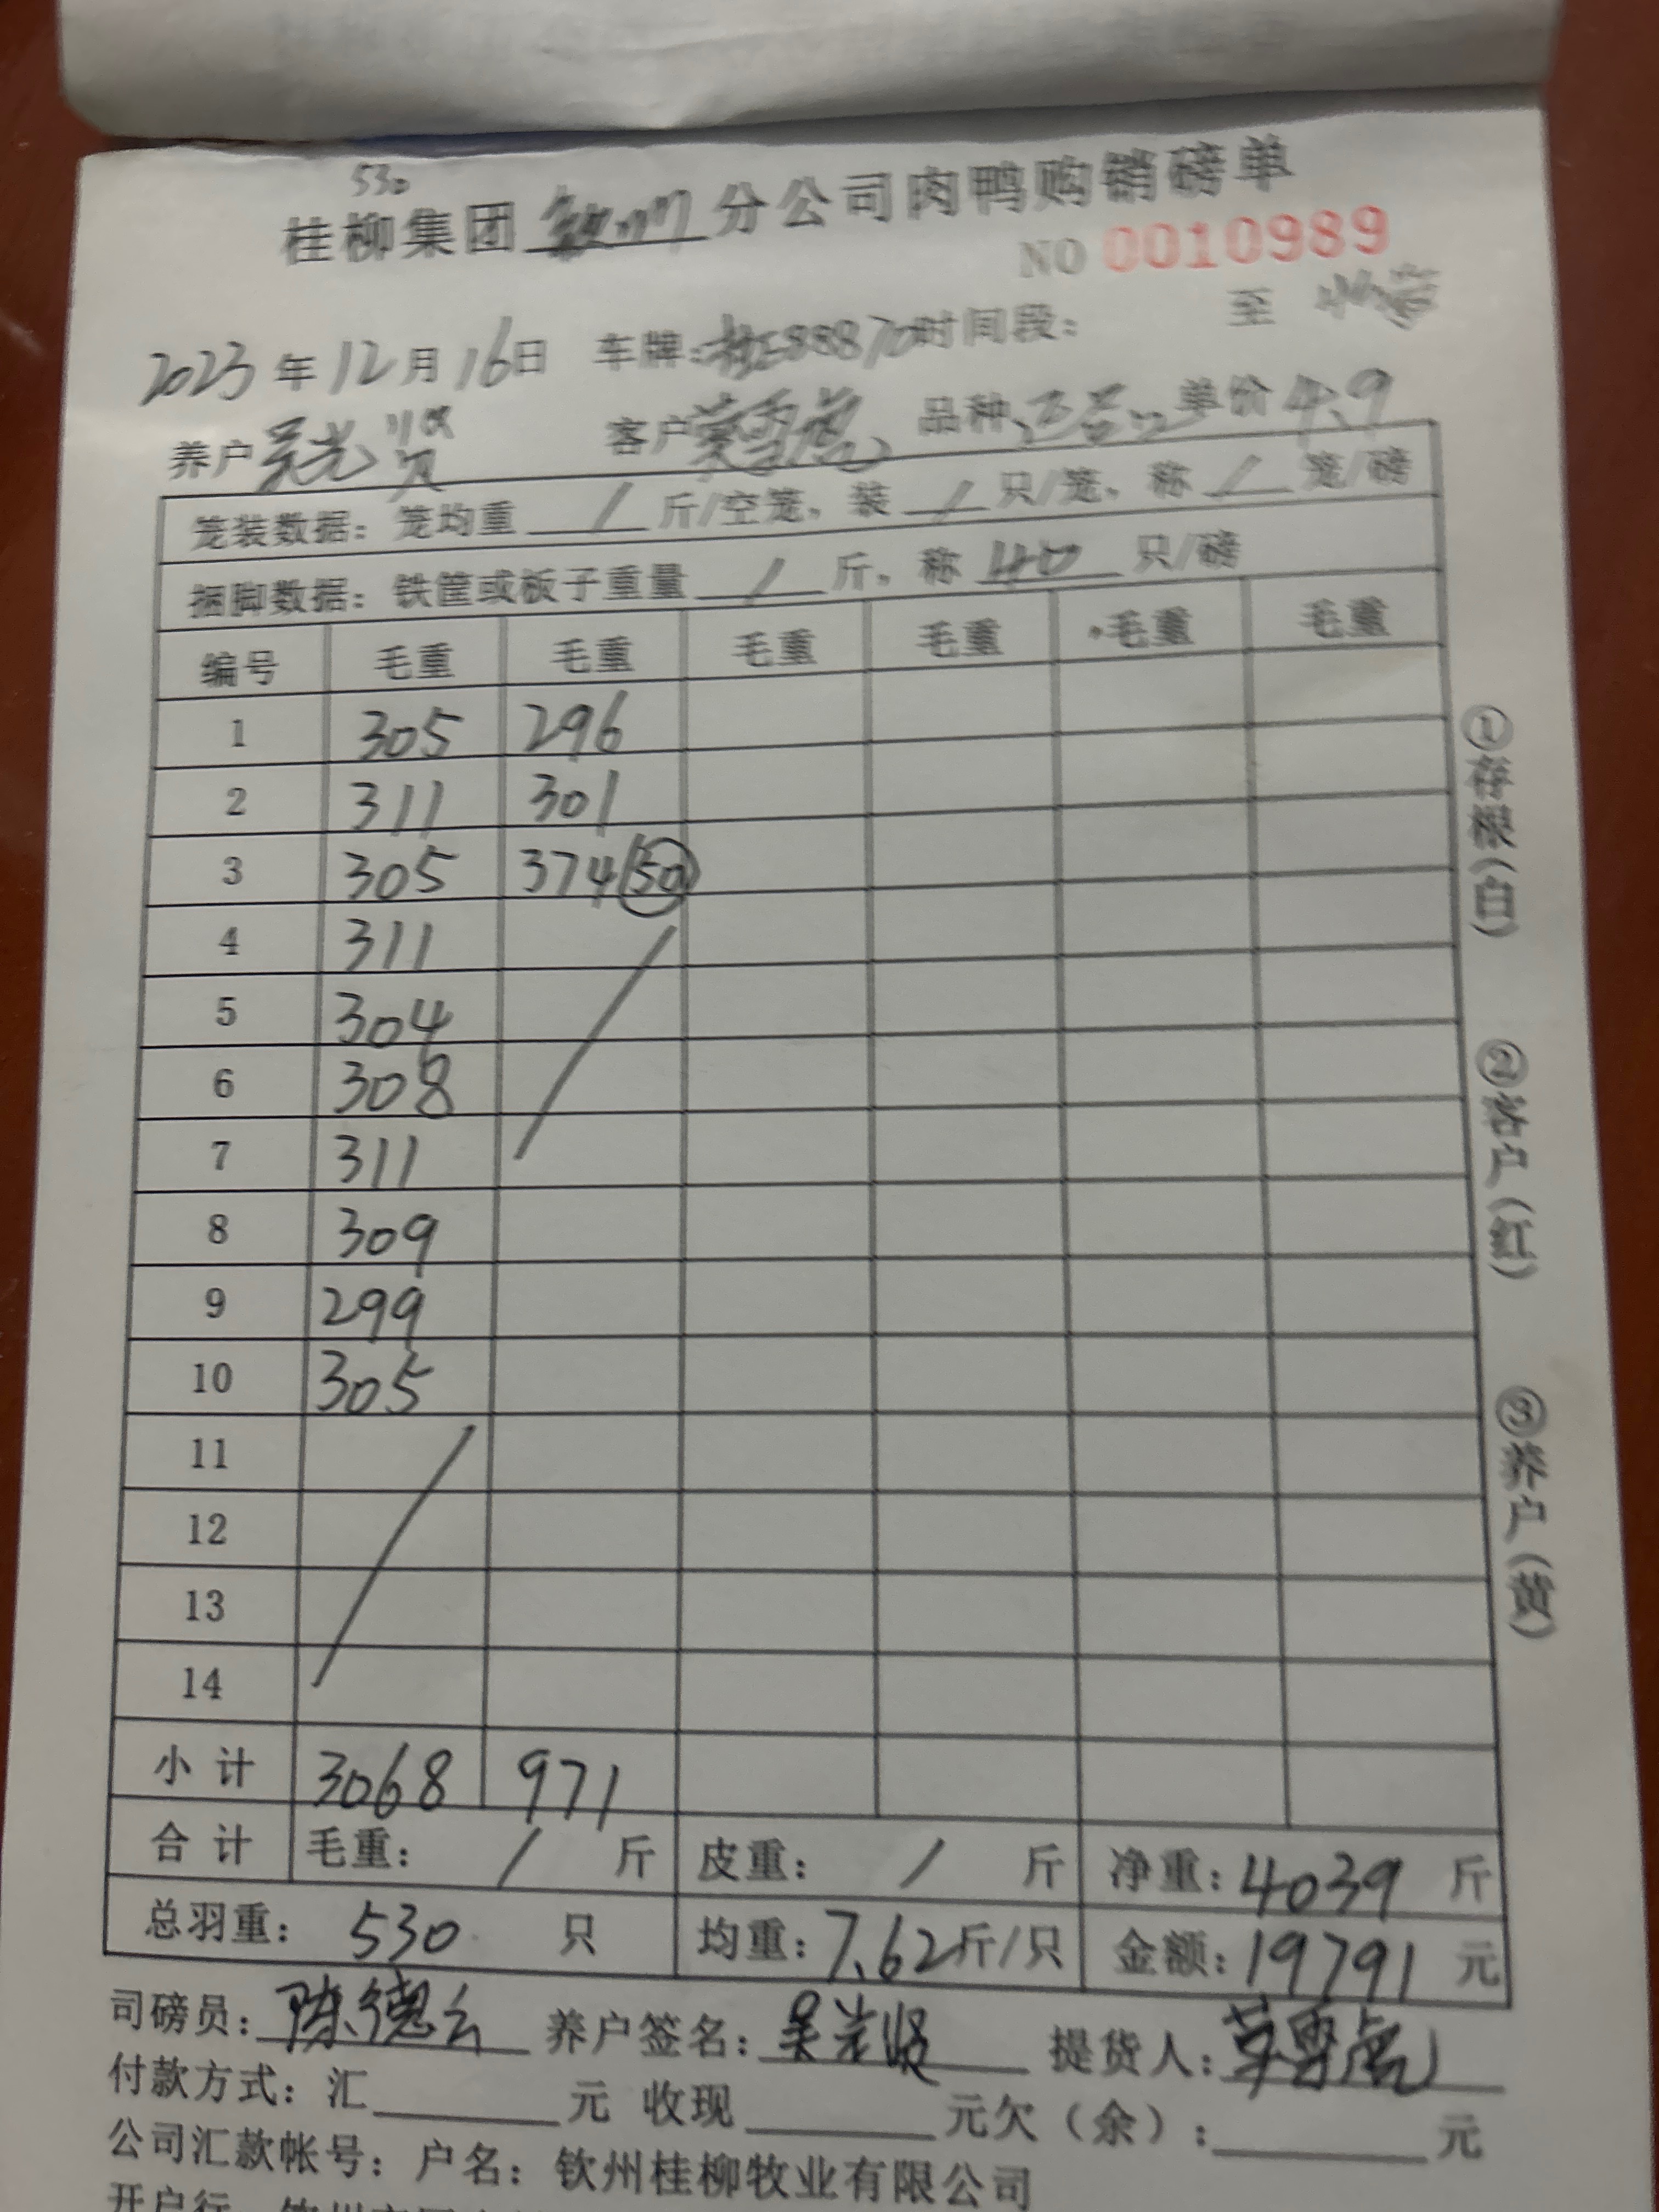 530
桂柳集团钦州分公司肉鸭购销磅单
NO 0010989
2023年12月16日 车牌:桂E88870时间段: 至
养户吴光贤 客户 品种: 单价4.9
笼装数据:笼均重 / 斤/空笼,装 / 只/笼,称 / 笼/磅
捆脚数据:铁筐或板子重量 / 斤,称 40 只/磅
编号 毛重 毛重 毛重 毛重 毛重 毛重
1 305 296
2 311 301
3 305 374 50
4 311
5 304
6 308
7 311
8 309
9 299
10 305
11
12
13
14
小计 3068 971
合计 毛重: / 斤 皮重: / 斤 净重:4039 斤
总羽重: 530 只 均重:7.62斤/只 金额:19791 元
司磅员:陈德云 养户签名:吴光贤 提货人:
付款方式:汇 元 收现 元欠(余): 元
公司汇款帐号:户名:钦州桂柳牧业有限公司
开户行
①存根(白) ②客户(红) ③养户(黄)